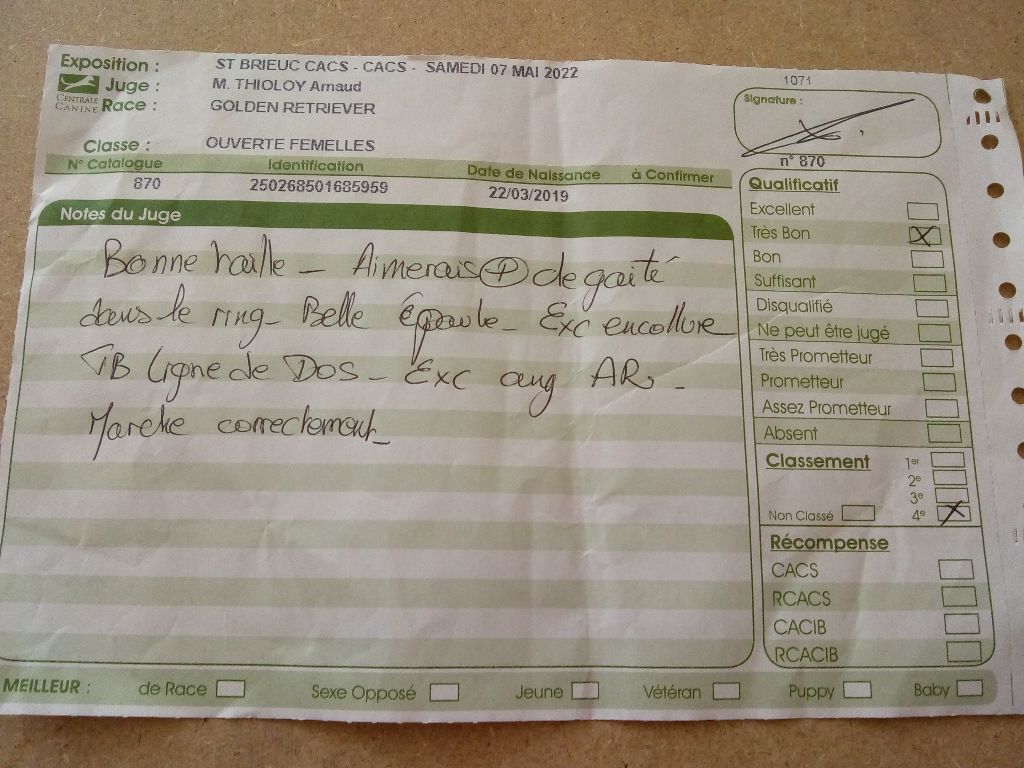 Exposition : ST BRIEUC CACS - CACS - SAMEDI 07 MAI 2022
Juge : M. THIOLOY Arnaud
CENTRALE CANINE
Race : GOLDEN RETRIEVER
1071
Signature :
Classe : OUVERTE FEMELLES
n° 870
N° Catalogue Identification Date de Naissance à Confirmer
870 250268501685959 22/03/2019
Notes du Juge
Bonne taille - Aimerais + de gaité
dans le ring - Belle Épaule - Exc encolure
TB ligne de Dos - Exc ang AR -
Marche correctement -
Qualificatif
Excellent
Très Bon X
Bon
Suffisant
Disqualifié
Ne peut être jugé
Très Prometteur
Prometteur
Assez Prometteur
Absent
Classement 1er
2e
3e
Non Classé 4e X
Récompense
CACS
RCACS
CACIB
RCACIB
MEILLEUR : de Race Sexe Opposé Jeune Vétéran Puppy Baby